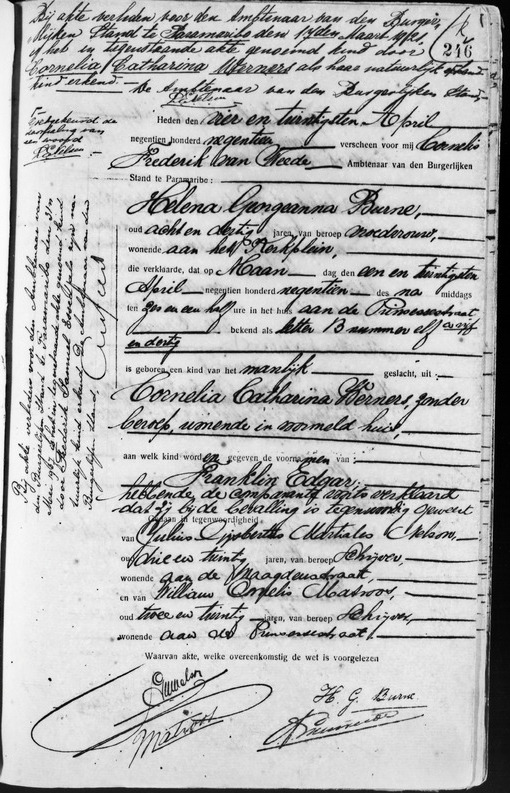 Bij akte verleden voor den Ambtenaar van den Burger-
lijken Stand te Paramaribo den Maart
is het in tegenstaande akte genoemd kind door
Cornelia Catharina Werners als haar natuurlijk
kind erkend.
De Ambtenaar van den Burgerlijken Stand,
246
Goedgekeurd de
doorhaling van
een woord
Heden den vier en twintigsten April
negentien honderd negentien verscheen voor mij Cornelis
Frederik van Ambtenaar van den Burgerlijken
Stand te Paramaribo:
Helena Burne,
oud acht en dertig jaren, van beroep vroedvrouw,
wonende aan het Kerkplein,
die verklaarde, dat op Maan dag den een en twintigsten
April negentien honderd negentien des na middags
ten zes en een half ure in het huis aan de Prinsessestraat
bekend als letter B nummer elf
en dertig
is geboren een kind van het manlijk geslacht, uit:
Cornelia Catharina Werners, zonder
beroep, wonende in voormeld huis,
aan welk kind word en gegeven de voorna men van:
Franklin Edgar,
hebbende de comparante verklaard
dat zij bij de bevalling is tegenwoordig geweest
Gedaan in tegenwoordigheid
van Julius Martiales Nelson,
oud drie en twintig jaren, van beroep schrijver,
wonende aan de Maagdenstraat,
en van Willem Cornelis Matroos,
oud twee en twintig jaren, van beroep schrijver,
wonende aan de Prinsessestraat.
Waarvan akte, welke overeenkomstig de wet is voorgelezen
H. G. Burne
Bij akte verleden voor den Ambtenaar van
den Burgerlijken Stand te Paramaribo den
Mei is het in tegenstaande akte genoemd kind
door Frederik Samuel als zijn na-
tuurlijk kind erkend. De Ambtenaar van den
Burgerlijken Stand,